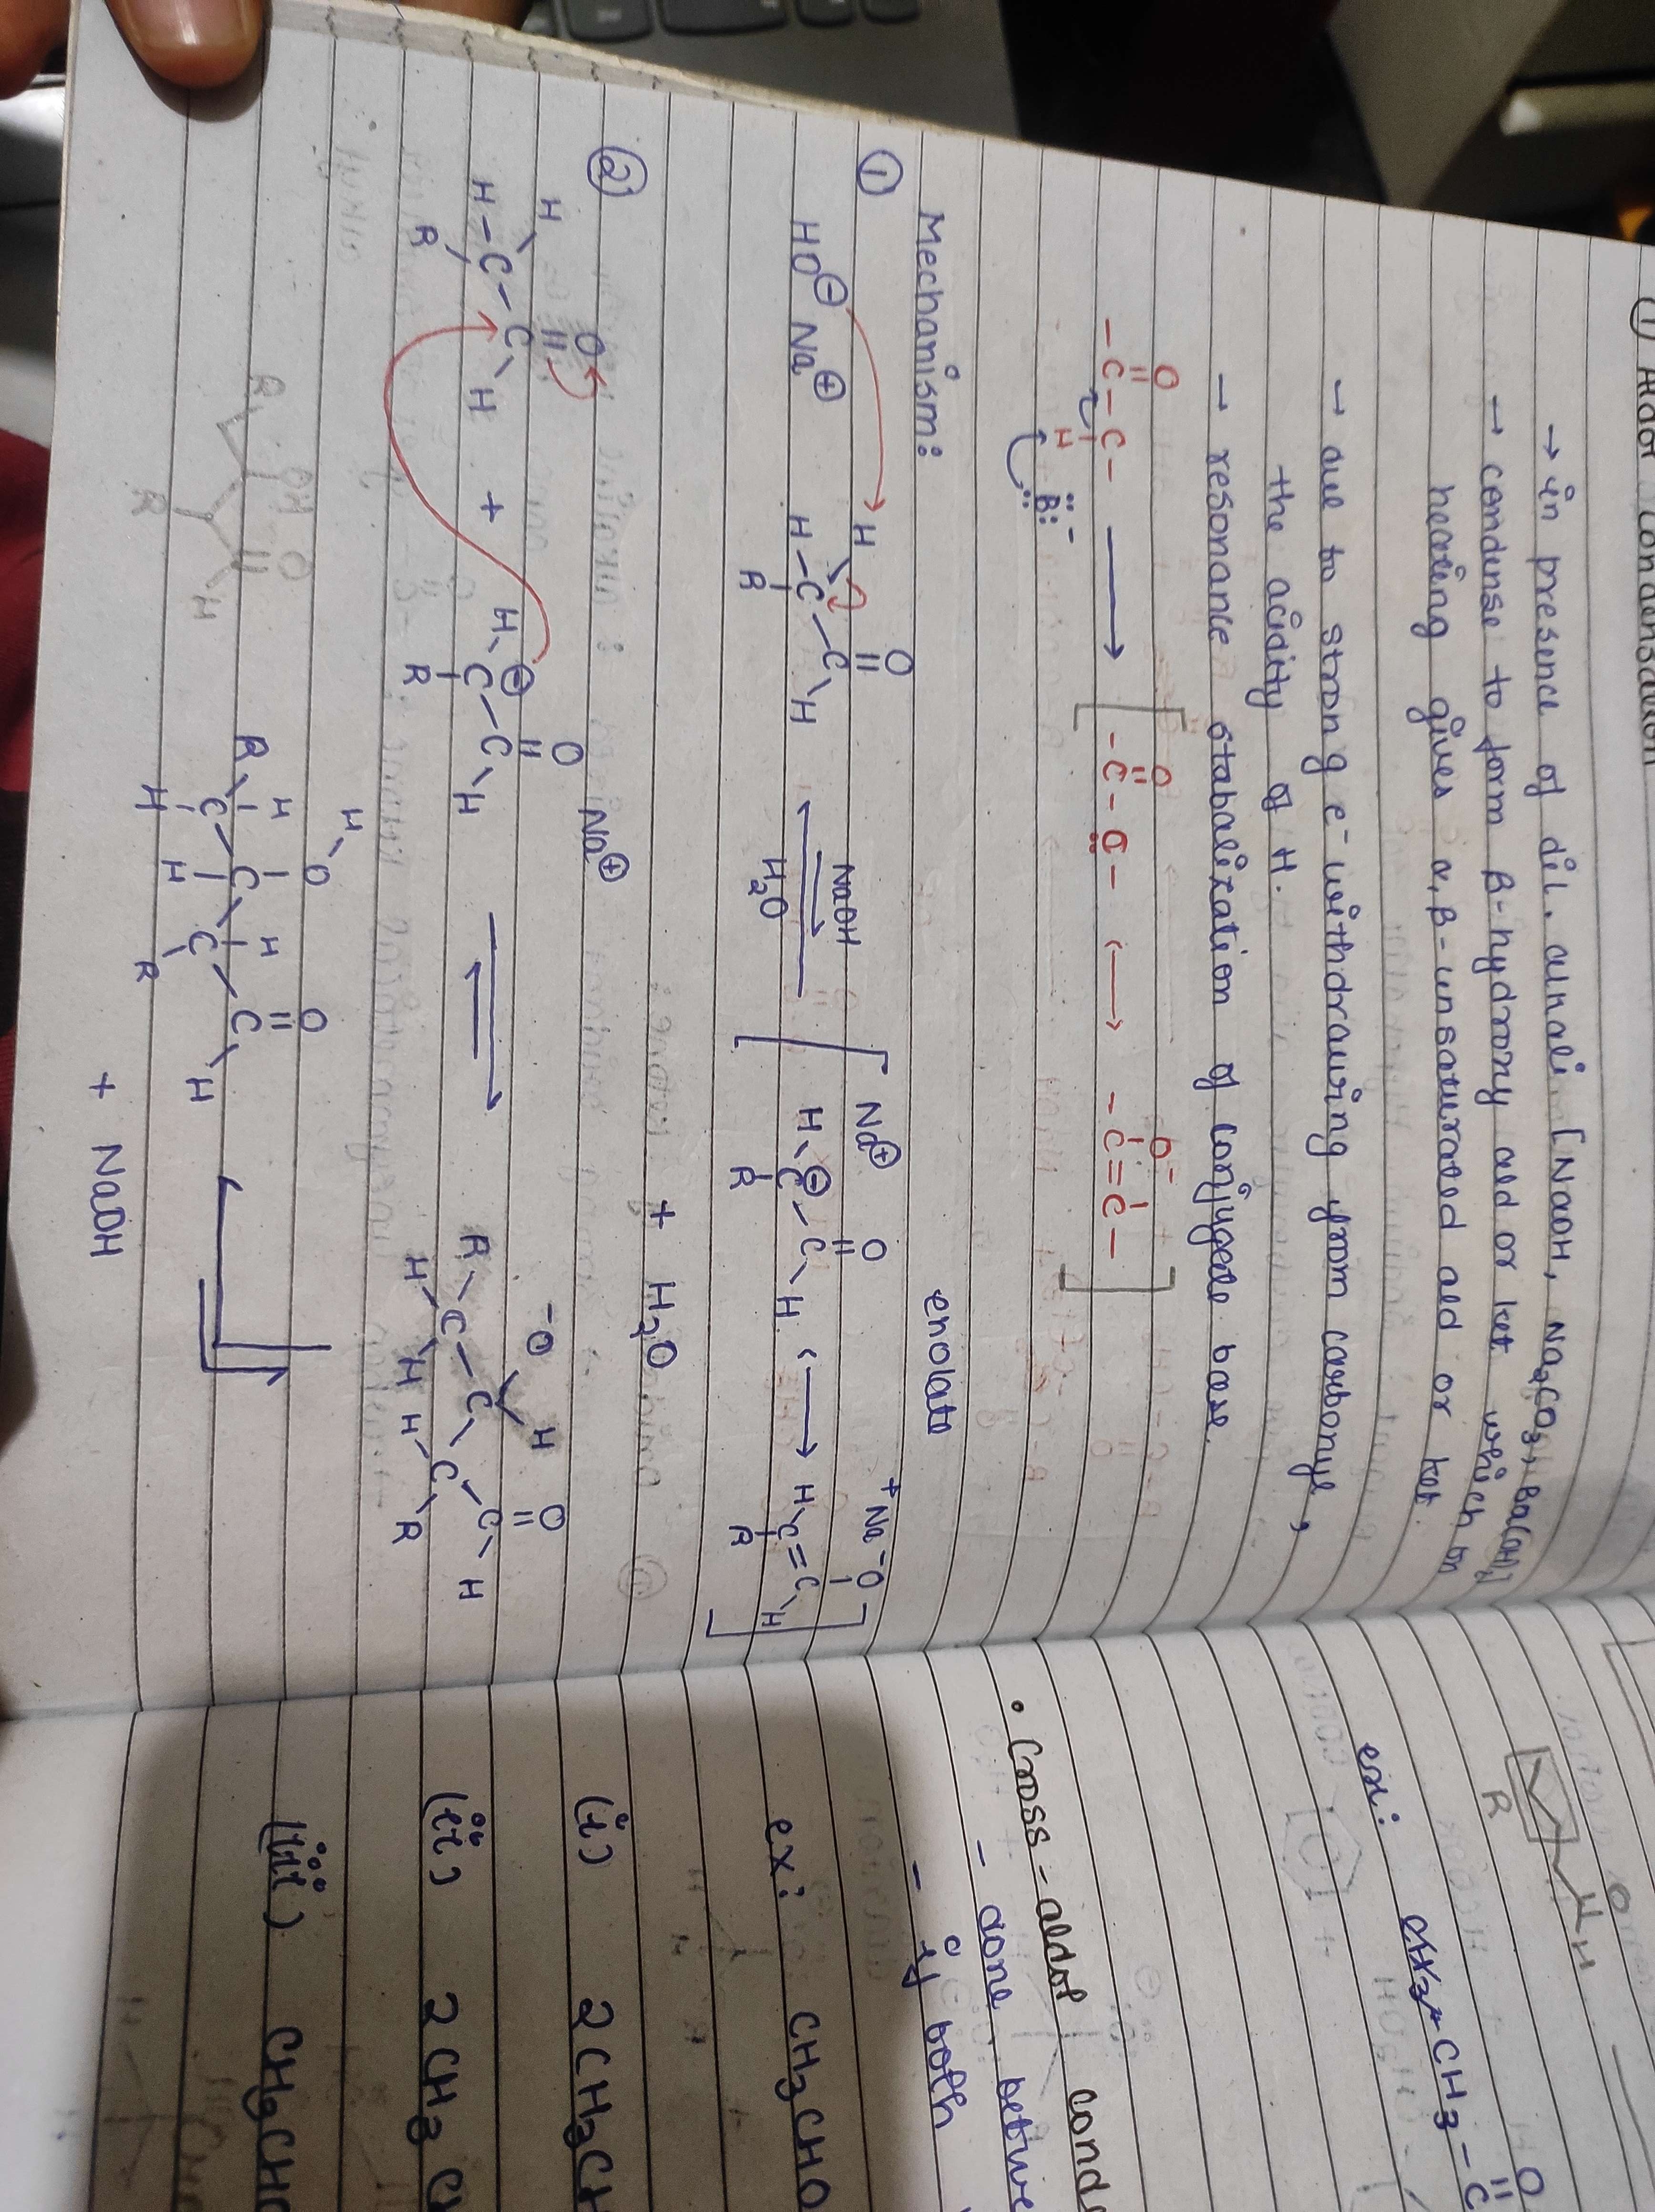 ① Aldol Condensation
→ in presence of dil. alkali [NaOH, Na2CO3, Ba(OH)2]
→ condense to form β-hydroxy ald or ket which on
heating gives α,β-unsaturated ald or ket.
→ due to strong e⁻ withdrawing from carbonyl,
the acidity of H.
→ resonance stabalization of conjugate base.
O O O⁻
-C-C- ⟶ [ -C-C- ⟷ -C=C- ]
H B:⁻
Mechanism: enolate
① HO⊖ Na⊕ H O NaOH Na⊕ O +Na ⁻O
H-C-C-H ⇌ [ H-C⊖-C-H ⟷ H-C=C-H ]
R H2O R R
+ H2O
② O O Na⊕ ⁻O H O
H H-C-C-H + H-C⊖-C-H ⇌ R-C-C-C-C-H
R R H H H R
H-O O
R H H
C-C-C-C-H
H H R
+ NaOH
R OH O
R H
R O H
ex: CH3-CH3-C
O
• Cross-aldol cond
- done betwe
- if both
ex: CH3CHO
(i) 2CH3CH
(ii) 2CH3C
(iii) CH3CHO